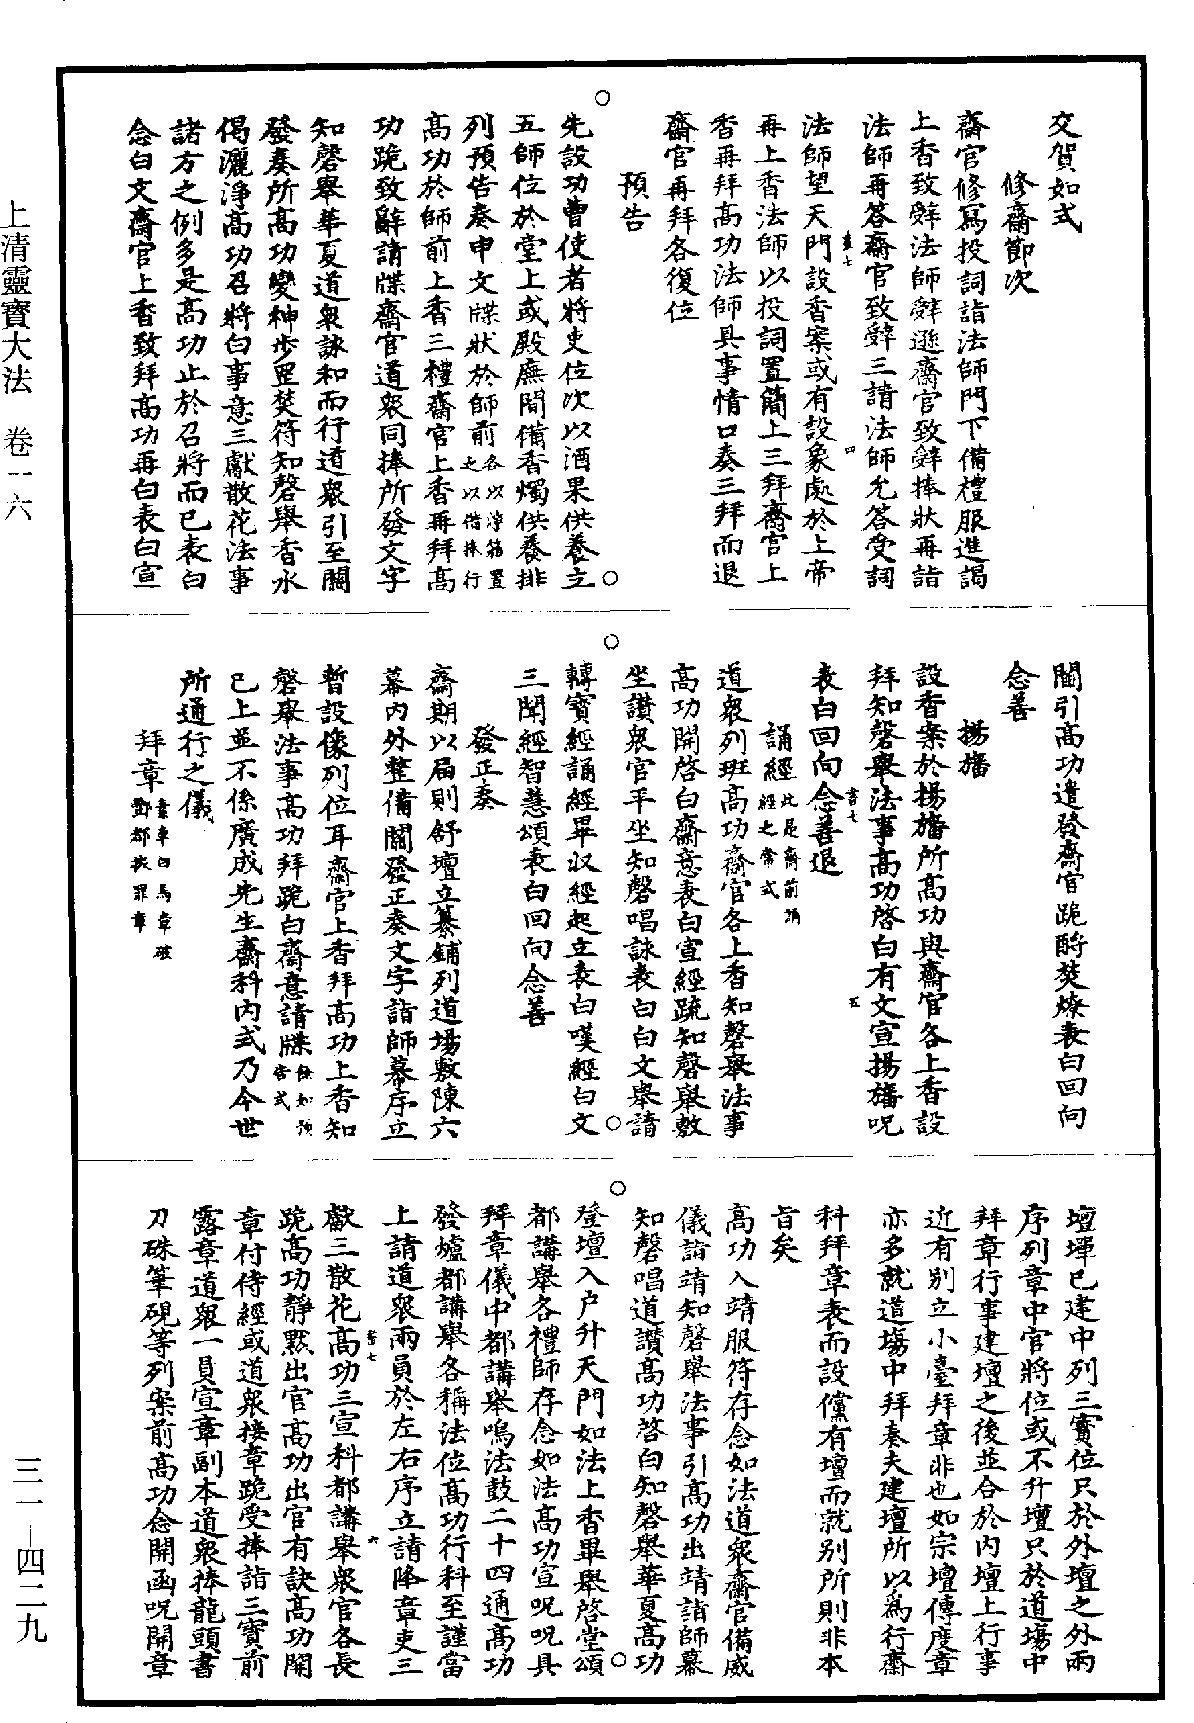 交賀如式
修齋節次
齋官修寫投詞詣法師門下備禮服進謁
上香致辭法師辭遜齋官致辭捧狀再詣
法師再答齋官致辭三請法師允答受詞
法師望天門設香案或有設象處於上帝
再上香法師以投詞置簡上三拜齋官上
香再拜高功法師具事情口奏三拜而退
齋官再拜各復位
預告
先設功曹使者將吏位次以酒果供養立
五師位於堂上或殿廡間備香燭供養排
列預告奏申文牒狀於師前各以淨箱置之以備捧行
高功於師前上香三禮齋官上香再拜高
功跪致辭請牒齋官道眾同捧所發文字
知磬舉華夏道眾詠和而行道眾引至關
發奏所高功變神步罡焚符知磬舉香水
偈灑淨高功召將白事意三獻散花法事
諸方之例多是高功止於召將而已表白
念白文齋官上香致拜高功再白表白宣
關引高功遣發齋官跪酹焚燎表白回向
念善
揚旛
設香案於揚旛所高功與齋官各上香設
拜知磬舉法事高功啓白有文宣揚旛呪
表白回向念善退
誦經此是齋前誦經之常式
道眾列班高功齋官各上香知磬舉法事
高功開啓白齋意表白宣經疏知磬舉敷
坐讚眾官平坐知磬唱詠表白白文舉請
轉寶經誦經畢收經起立表白嘆經白文
三聞經智慧頌表白回向念善
發正奏
齋期以屆則舒壇立纂鋪列道場敷陳六
幕內外整備關發正奏文字詣師幕序立
暫設像列位耳齋官上香拜高功上香知
磬舉法事高功拜跪白齋意請牒餘如預告式
已上並不係廣成先生齋科內式乃今世
所通行之儀
拜章素車白馬章破酆都拔罪章
壇墠已建中列三寶位只於外壇之外兩
序列章中官將位或不升壇只於道場中
拜章行事建壇之後並合於內壇上行事
近有別立小臺拜章非也如宗壇傳度章
亦多就道場中拜奏夫建壇所以爲行齋
科拜章表而設儻有壇而就別所則非本
旨矣
高功入靖服符存念如法道眾齋官備威
儀詣靖知磬舉法事引高功出靖詣師幕
知磬唱道讚高功啓白知磬舉華夏高功
登壇入户升天門如法上香畢舉啓堂頌
都講舉各禮師存念如法高功宣呪呪具
拜章儀中都講舉鳴法鼓二十四通高功
發爐都講舉各稱法位高功行科至謹當
上請道眾兩員於左右序立請降章吏三
獻三散花高功三宣科都講舉眾官各長
跪高功靜默出官高功出官有訣高功開
章付侍經或道眾接章跪受捧詣三寶前
露章道眾一員宣章副本道眾捧龍頭書
刀硃筆硯等列案前高功念開函呪開章
上清靈寶大法　卷十六
三一—四二九